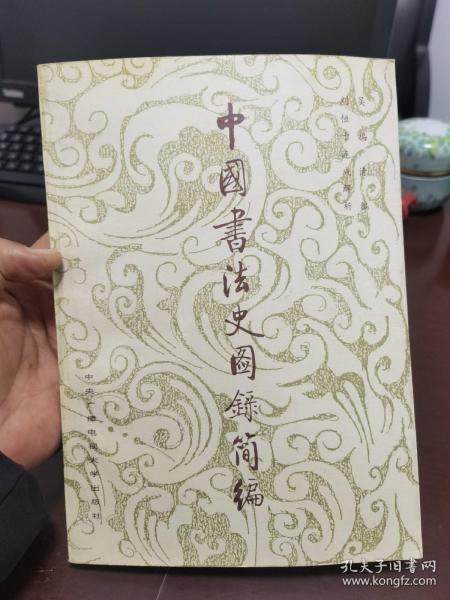 中國書法史图録简编
中央广播电视大学出版社
孔夫子旧书网
www.kongfz.com